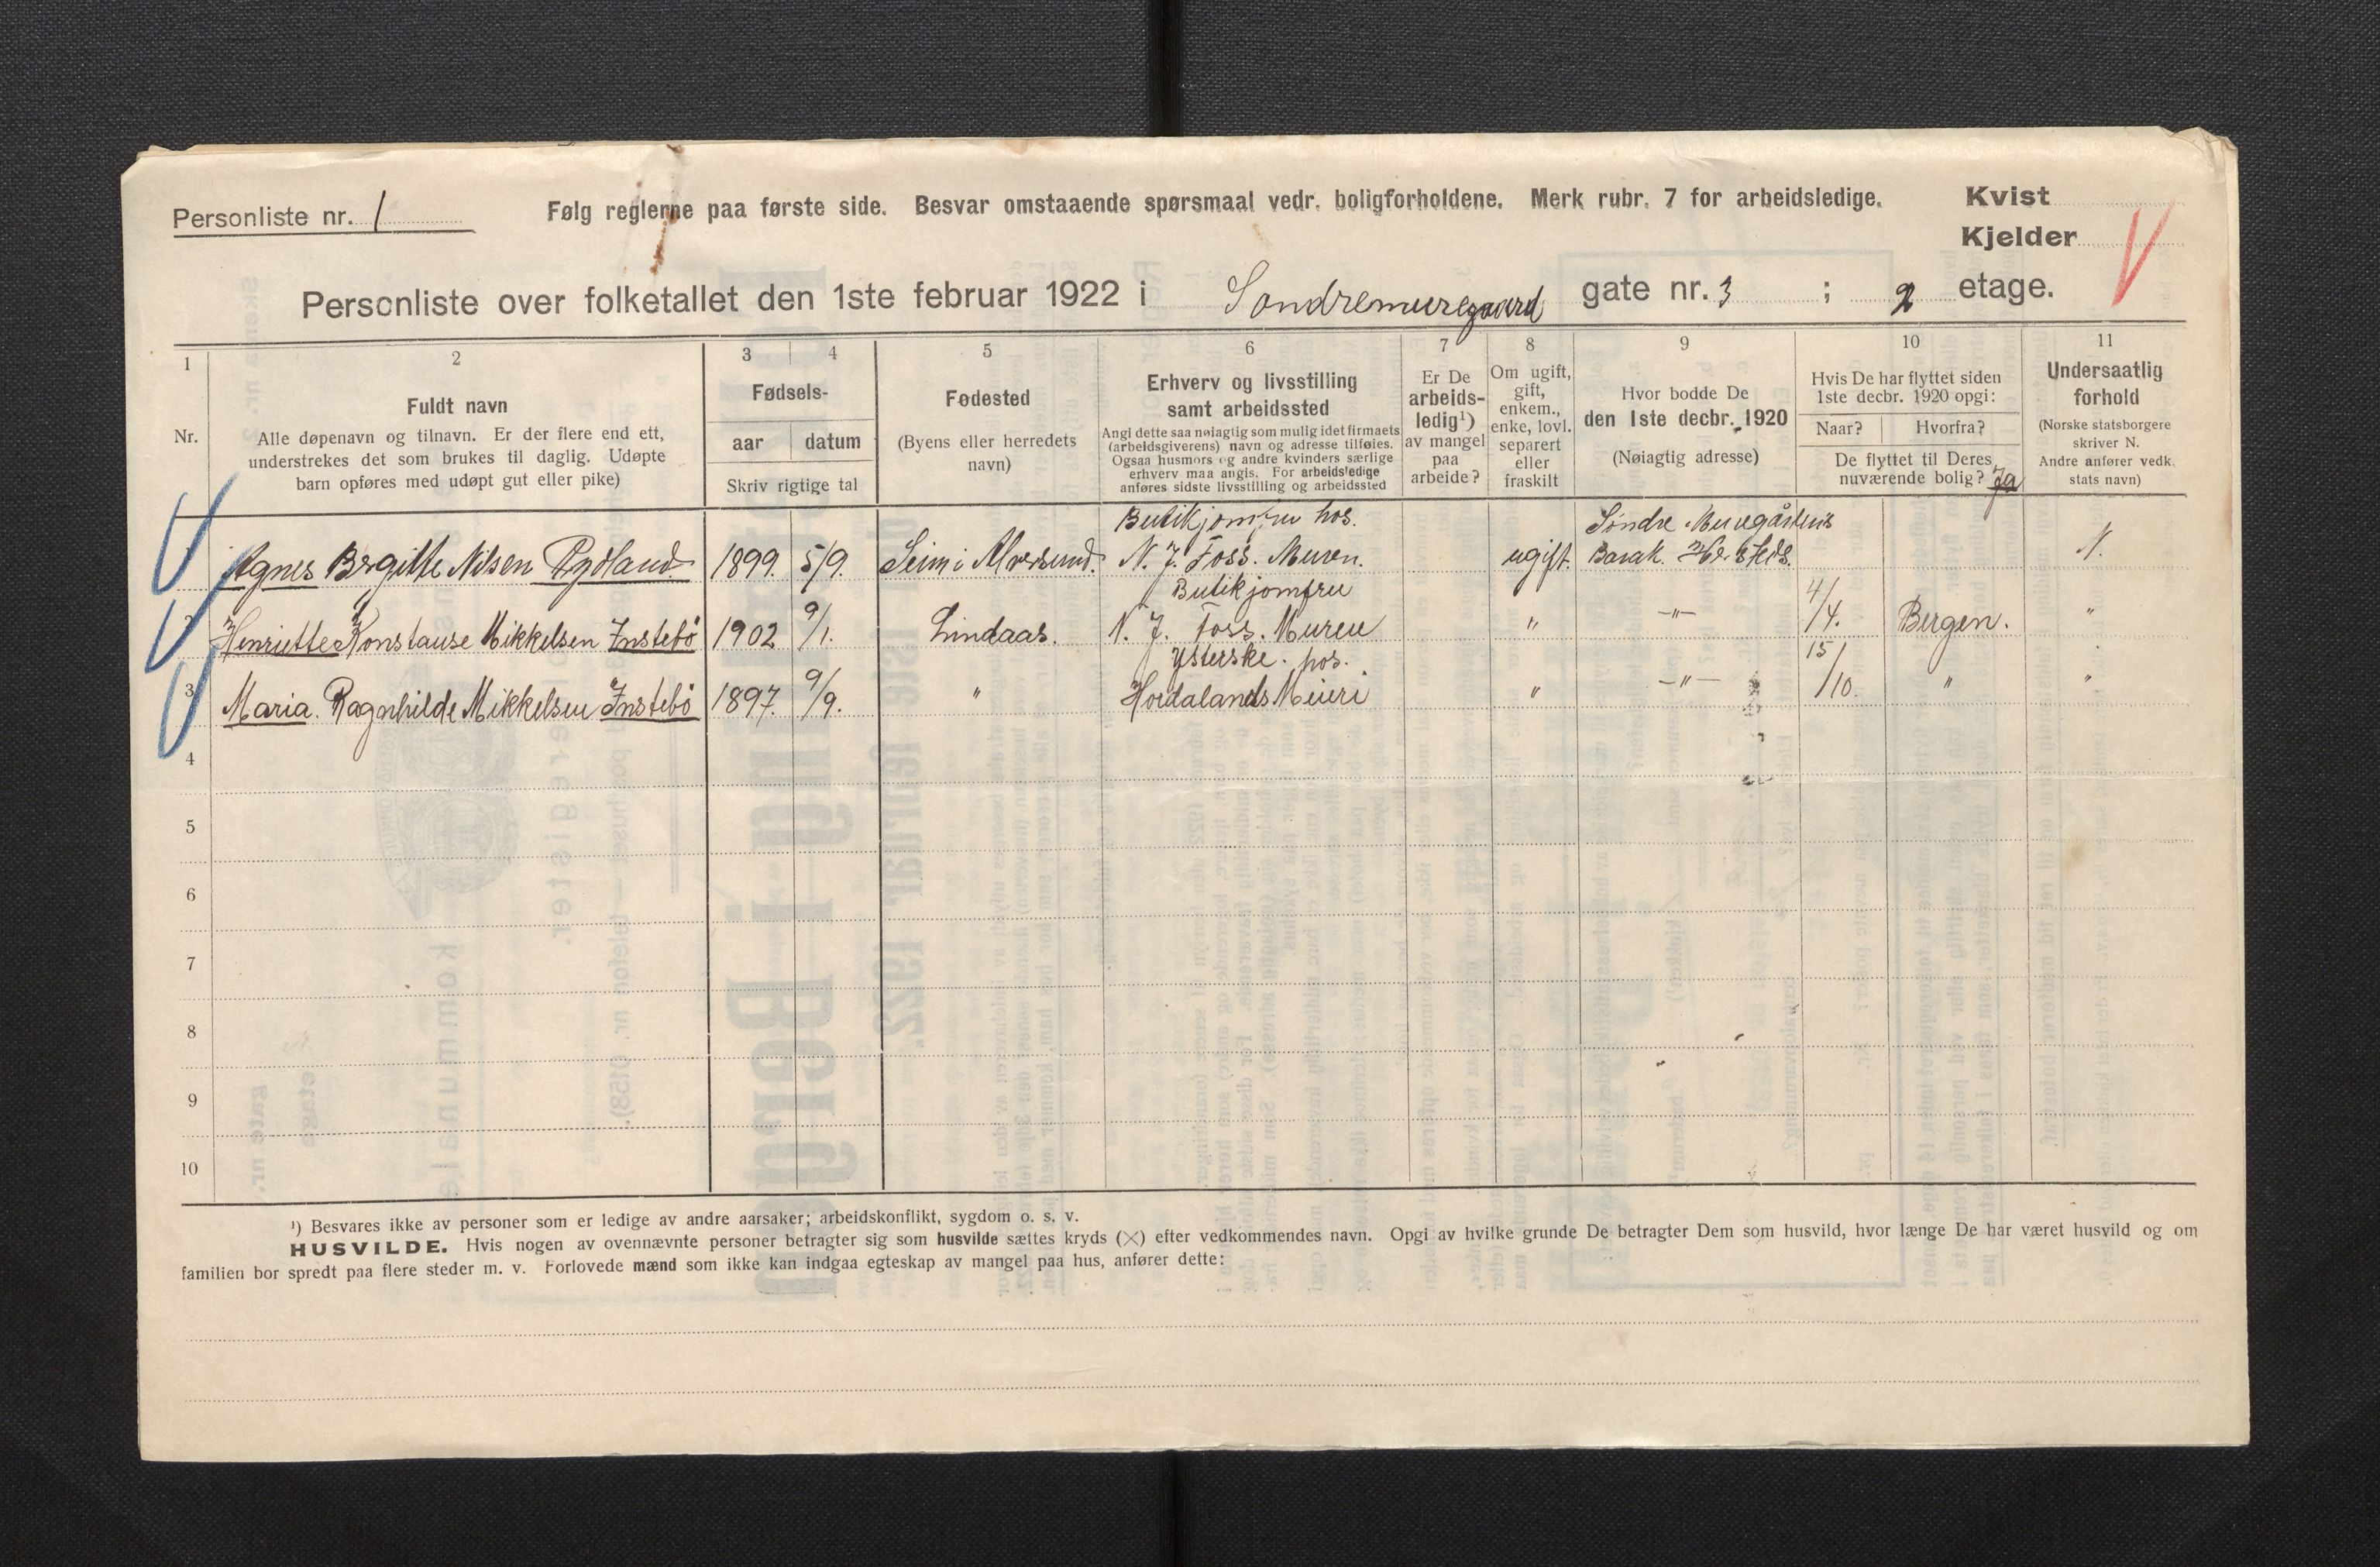 Personliste nr. 1
Følg reglerne paa første side. Besvar omstaaende spørsmaal vedr. boligforholdene. Merk rubr. 7 for arbeidsledige.
Kvist
Kjelder
Personliste over folketallet den 1ste februar 1922 i Søndremuregaard gate nr. 3 ; 2 etage.
1 2 3 4 5 6 7 8 9 10 11
Nr.
Fuldt navn
Alle døpenavn og tilnavn. Er der flere end ett,
understrekes det som brukes til daglig. Udøpte
barn opføres med udøpt gut eller pike)
Fødsels-
aar datum
Skriv rigtige tal
Fødested
(Byens eller herredets
navn)
Erhverv og livsstilling
samt arbeidssted
Angi dette saa nøiagtig som mulig idet firmaets
(arbeidsgiverens) navn og adresse tilføies.
Ogsaa husmors og andre kvinders særlige
erhverv maa angis. For arbeidsledige
anføres sidste livsstilling og arbeidssted
Er De
arbeids-
ledig¹)
av mangel
paa
arbeide?
Om ugift,
gift,
enkem.,
enke, lovl.
separert
eller
fraskilt
Hvor bodde De
den 1ste decbr. 1920
(Nøiagtig adresse)
Hvis De har flyttet siden
1ste decbr. 1920 opgi:
Naar? Hvorfra?
De flyttet til Deres
nuværende bolig? Ja
Undersaatlig
forhold
(Norske statsborgere
skriver N.
Andre anfører vedk.
stats navn)
Butikjomfru hos. Søndre Muregårdens
Agnes Bergitte Nilsen Rydland. 1899. 5/9. Seim i Alversund. N. J. Foss. Muren. ugift. Barak. N.
Butikjomfru
Henriette Konstanse Mikkelsen Instebö 1902 9/1. Lindaas. N. J. Foss. Muren " -"- 4/4. Bergen. "
Ysterske. hos.
3 Maria. Ragnhilde Mikkelsen Instebö 1897. 9/9. " Hordalands Meieri " -"- 15/10. " "
4
5
6
7
8
9
10
¹) Besvares ikke av personer som er ledige av andre aarsaker; arbeidskonflikt, sygdom o. s. v.
HUSVILDE. Hvis nogen av ovennævnte personer betragter sig som husvilde sættes kryds (X) efter vedkommendes navn. Opgi av hvilke grunde De betragter Dem som husvild, hvor længe De har været husvild og om
familien bor spredt paa flere steder m. v. Forlovede mænd som ikke kan indgaa egteskap av mangel paa hus, anfører dette: